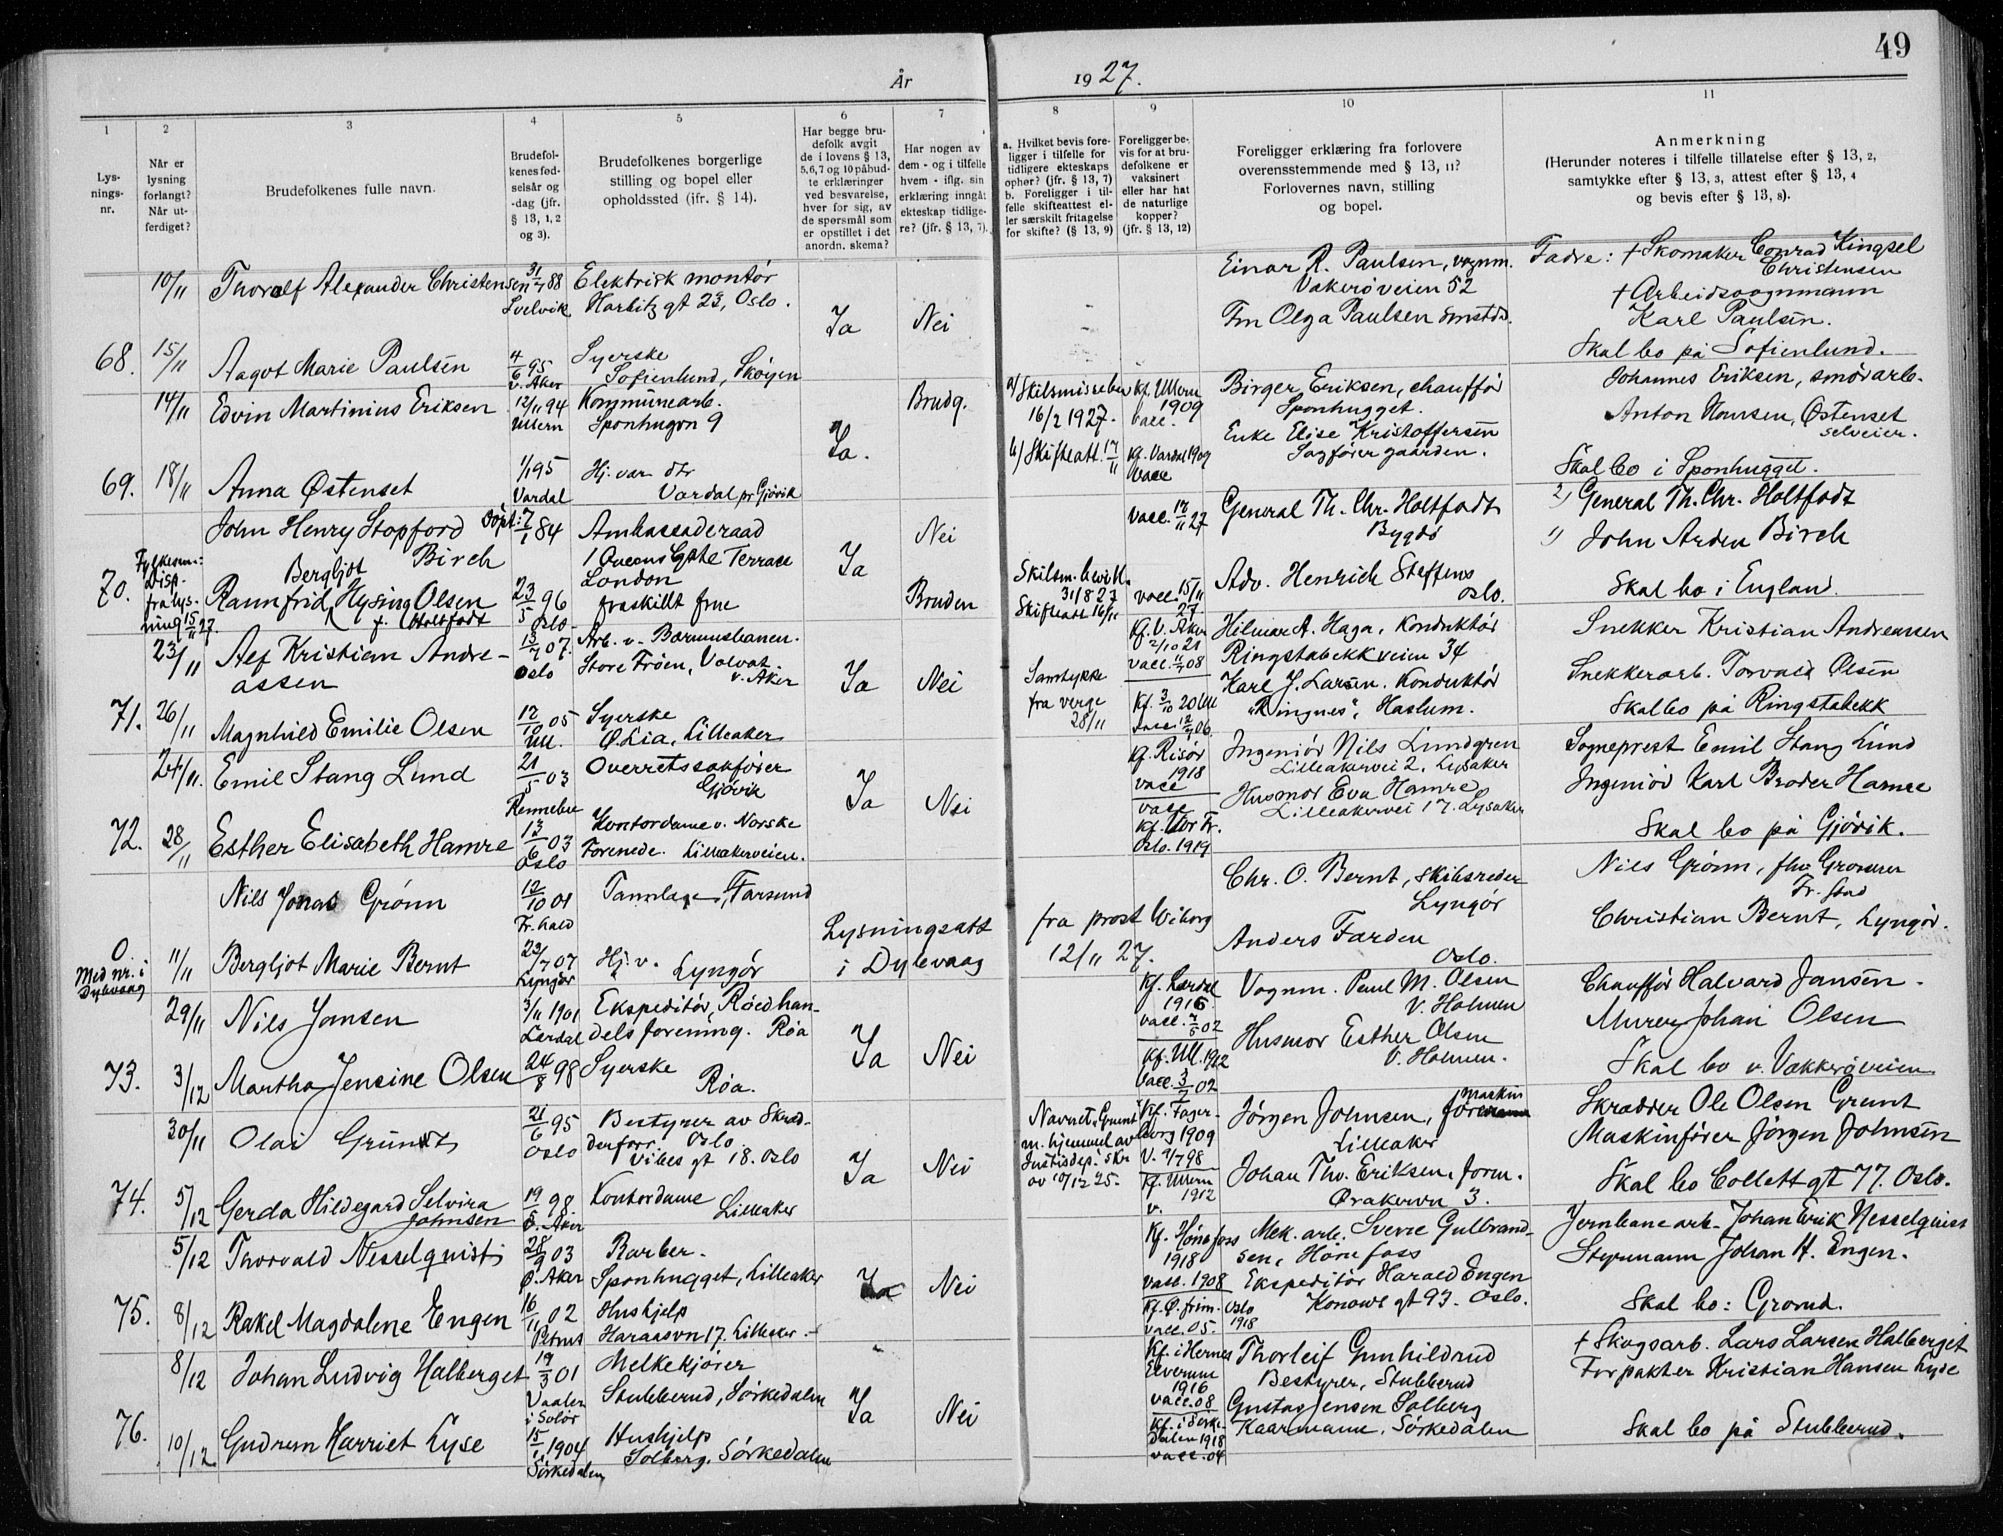 49
År 1927.
1
2
3
4
5
6
7
8
9
10
11
Lys-
nings-
nr.
Når er
lysning
forlangt?
Når ut-
ferdiget?
Brudefolkenes fulle navn.
Brudefol-
kenes fød-
selsår og
-dag (jfr.
§ 13, 1, 2
og 3).
Brudefolkenes borgerlige
stilling og bopel eller
opholdssted (jfr. § 14).
Har begge bru-
defolk avgit
de i lovens § 13,
5,6,7 og 10 påbud-
te erklæringer
ved besvarelse,
hver for sig, av
de spørsmål som
er opstillet i det
anordn. skema?
Har nogen av
dem - og i tilfelle
hvem - iflg. sin
erklæring inngåt
ekteskap tidlige-
re? (jfr. § 13, 7).
a. Hvilket bevis fore-
ligger i tilfelle for
tidligere ekteskaps
ophør? (jfr. § 13, 7)
b. Foreligger i til-
felle skifteattest el-
ler særskilt fritagelse
for skifte? (§ 13, 9)
Foreligger be-
vis for at bru-
defolkene er
vaksinert
eller har hat
de naturlige
kopper?
(jfr. § 13, 12)
Foreligger erklæring fra forlovere
overensstemmende med § 13, 11?
Forlovernes navn, stilling
og bopel.
Anmerkning
(Herunder noteres i tilfelle tillatelse efter § 13, 2,
samtykke efter § 13, 3, attest efter § 13, 4
og bevis efter § 13, 8).
10/11 Thoralf Alexander Christensen 31/7 88 Elektrisk montør
Svelvik Harbitz gt 23, Oslo.
Ja Nei
Einar R. Paulsen, vognm.
Vækerøveien 52
Fru Olga Paulsen smstds.
Fadre: † Skomaker Conrad Kingsel
Christensen
† Arbeidsvognmann
Karl Paulsen.
Skal bo på Sofienlund.
68. 15/11 Aagot Marie Paulsen 4/6 95 Syerske
v. Aker Sofienlund, Skøyen
14/11 Edvin Martinius Eriksen 12/11 94 Kommunearb.
Ullern Sponhugvn 9
Ja. Brudg.
a/ Skilsmissebev
16/2 1927.
b/ Skifteatt. 17/11
Kf. Ullern
1909
vacc.
Kf. Vardal 1909
Vacc
Birger Eriksen, chauffør
Sponhugget.
Enke Elise Kristoffersen
Sagfører gaarden.
Johannes Eriksen, smørarb.
Anton Hansen, Østenset
selveier.
Skal bo i Sponhugget.
69. 18/11 Anna Østenset 1/1 95 Hj. vær. dtr
Vardal Vardal pr Gjøvik
John Henry Stopford Birch døpt: 7/1 84 Ambassaderaad
1 Queens Gate Terrace
London
Ja Nei
vacc. 17/11 27
General Th. Chr. Holtfodt
Bygdø
2) General Th. Chr. Holtfodt
1) John Arden Birch
70. Fylkesm.:
Disp.
fra lys-
ning 15/11 27.
Bergljot
Rannfrid Hysing Olsen
f. Holtfodt
23/5 96
Oslo
fraskilt frue
Bruden
Skilsm. bevill.
31/8 27
Skifteatt 16/11
vacc. 15/11
27
Adv. Henrich Steffens
Oslo.
Skal bo i England.
23/11 Alf Kristian Andre-
assen
13/7 07. Arb. v. Bærumsbanen.
Oslo Store Frøen, Volvat.
v. Aker
Ja Nei
Samtykke
fra verge
28/11
Kf. V. Aker
2/10 21
vacc. 11/7 08
Hilmar A. Haga, Konduktør
Ringstabekkveien 34
Snekker Kristian Andreassen
71. 26/11 Magnhild Emilie Olsen 12/10 05 Syerske
Ull. Ø. Lia, Lilleaker
Kf. 3/10 20 Ull
Karl J. Larsen. Konduktør
"Ringnes", Haslum.
Snekkerarb. Torvald Olsen
Skal bo på Ringstabekk
24/11. Emil Stang Lund 21/5 03 Overretssakfører
Rennebu Gjøvik
Ja Nei
Kf. Risør
1918
vacc
Ingeniør Nils Lundgren
Lilleakervei 2, Lysaker
Sogneprest Emil Stang Lund
72. 28/11 Esther Elisabeth Hamre 13/6 03 Kontordame v. Norske
Oslo Forenede. Lilleakerveien.
vacc
Kf. Vor Fr.
Oslo. 1919
Husmor Eva Hamre
Lilleakervei 17. Lysaker
Ingeniør Karl Broder Hamre
Skal bo på Gjøvik.
Nils Jonas Grønn 12/10 01 Tannlæge, Farsund
Fr. hald
Lysningsatt
i Dypvaag
fra prost Wiborg
12/11 27.
Chr. O. Bernt, skibsreder
Lyngør
Nils Grønn, fhv Grosserer
Fr. stad
0. Med nr. i
Dybvaag
11/11 Bergljot Marie Bernt 22/7 07 Hj. v. Lyngør
Lyngør
Anders Færden
Oslo.
Christian Bernt, Lyngør.
29/11 Nils Jansen 3/11 1901 Ekspeditør, Røed han-
Lardal dels forening. Røa
Ja Nei
Kf. Lardal
1916
vacc. 7/5 02
Vognm. Paul M. Olsen
V. Holmen
Chauffør Halvard Jansen.
73. 3/12 Martha Jensine Olsen 24/8 98 Syerske
Røa.
Kf. Ull. 1912
Vacc. 3/7 02
Husmor Esther Olsen
V. Holmen.
Murer Johan Olsen
Skal bo v. Vækkerøveien
30/11 Olai Grundt 21/6 95 Bestyrer av Skræd-
Oslo derforr. Oslo
Vibes gt 18. Oslo
Ja Nei
Navnet Grundt
m. hjemmel av
Justisdep.s skr
av 10/12 25.
Kf. Fager-
borg 1909
V. 9/7 98
Jørgen Johnsen, maskin
Lilleaker
Skrædder Ole Olsen Grunt
74. 5/12 Gerda Hildegard Selvira
Johnsen
19/5 98 Kontordame
Ø. Aker Lilleaker
Kf. Ullern
1912
v.
Johan Thv. Eriksen, form.
Ørakervn 3.
Maskinfører Jørgen Johnsen
Skal bo Collett gt 77. Oslo.
5/12 Thorvald Nesselquist 28/9 03 Barber.
Ø. Aker Sponhugget, Lilleaker
Ja Nei
Kf. Hønefoss
1918
vacc. 1908
Mek. arb. Sverre Gulbrand-
sen, Hønefoss
Jernbanearb. Johan Erik Nesselquist
75. 8/12 Rakel Magdalene Engen 16/11 02 Hushjelp
Petrus Haraasvn 17. Lilleaker.
Kf. Ø. frim. Oslo
1918
vacc. 05.
Ekspeditør Harald Engen
Konows gt 93. Oslo.
Styrmann Johan H. Engen.
Skal bo: Grorud.
8/12 Johan Ludvig Halberget 19/3 01 Melkekjører
Vaaler
i Solør
Stubberud, Sørkedalen
Ja Nei
Kf. i Hernes
Elverum
1916
vacc. 08
Thorleif Gunhildrud
Bestyrer, Stubberud
† Skogsarb. Lars Larsen Halberget
76. 10/12. Gudrun Harriet Lyse 15/1 1904 Hushjelp
Sørkedalen Solberg, Sørkedalen
Kf. i Sørke-
dalen 1918
vacc. 04
Gustav Jensen Solberg
Kaarmann, Sørkedalen
Forpakter Kristian Hansen Lyse
Skal bo på Stubberud.